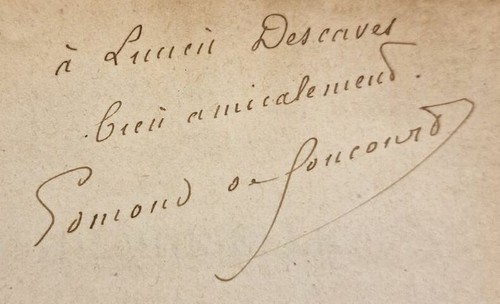 à Lucien Descaves
bien amicalement.
Edmond de Goncourt